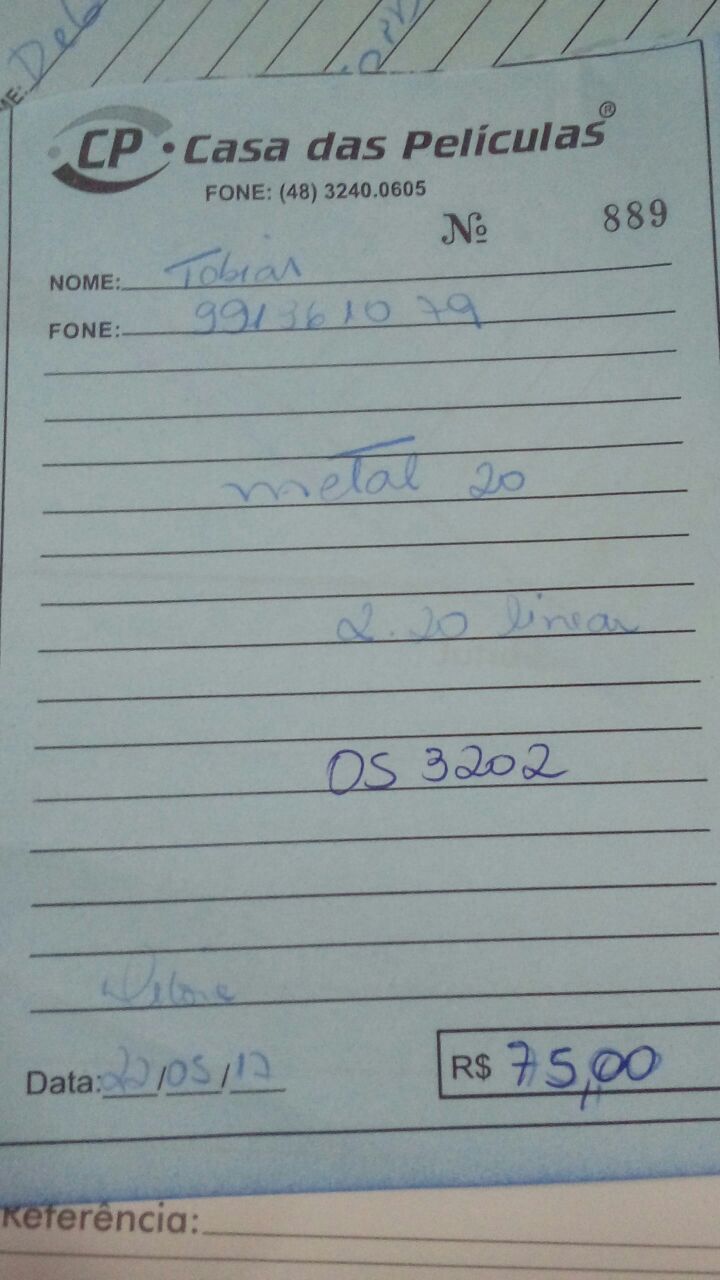 CP • Casa das Películas®
FONE: (48) 3240.0605
Nº 889
NOME: Tobias
FONE: 991361079
metal 20
2.20 linear
OS 3202
Data: 22/05/17
R$ 75,00
Referência: